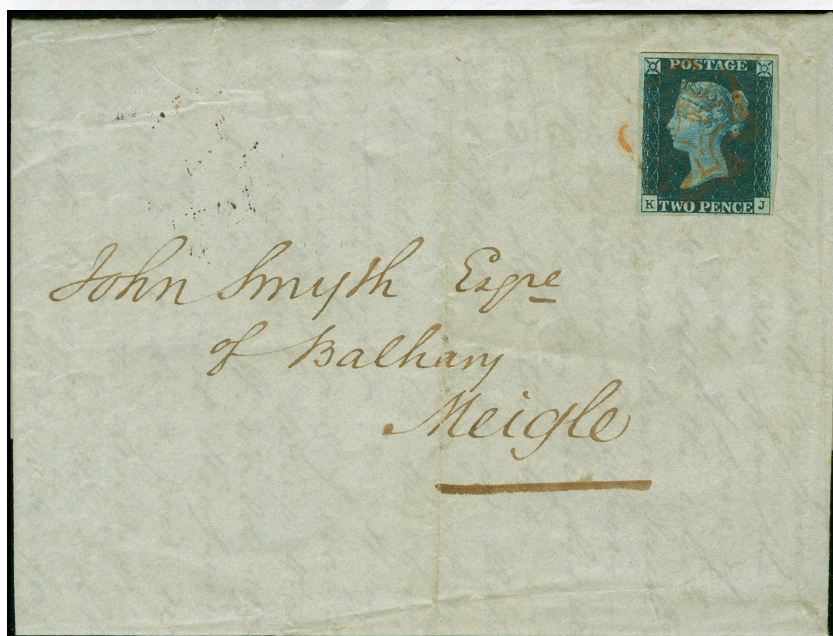 POSTAGE
TWO PENCE
K J
John Smyth Esqre
of Balhary
Meigle